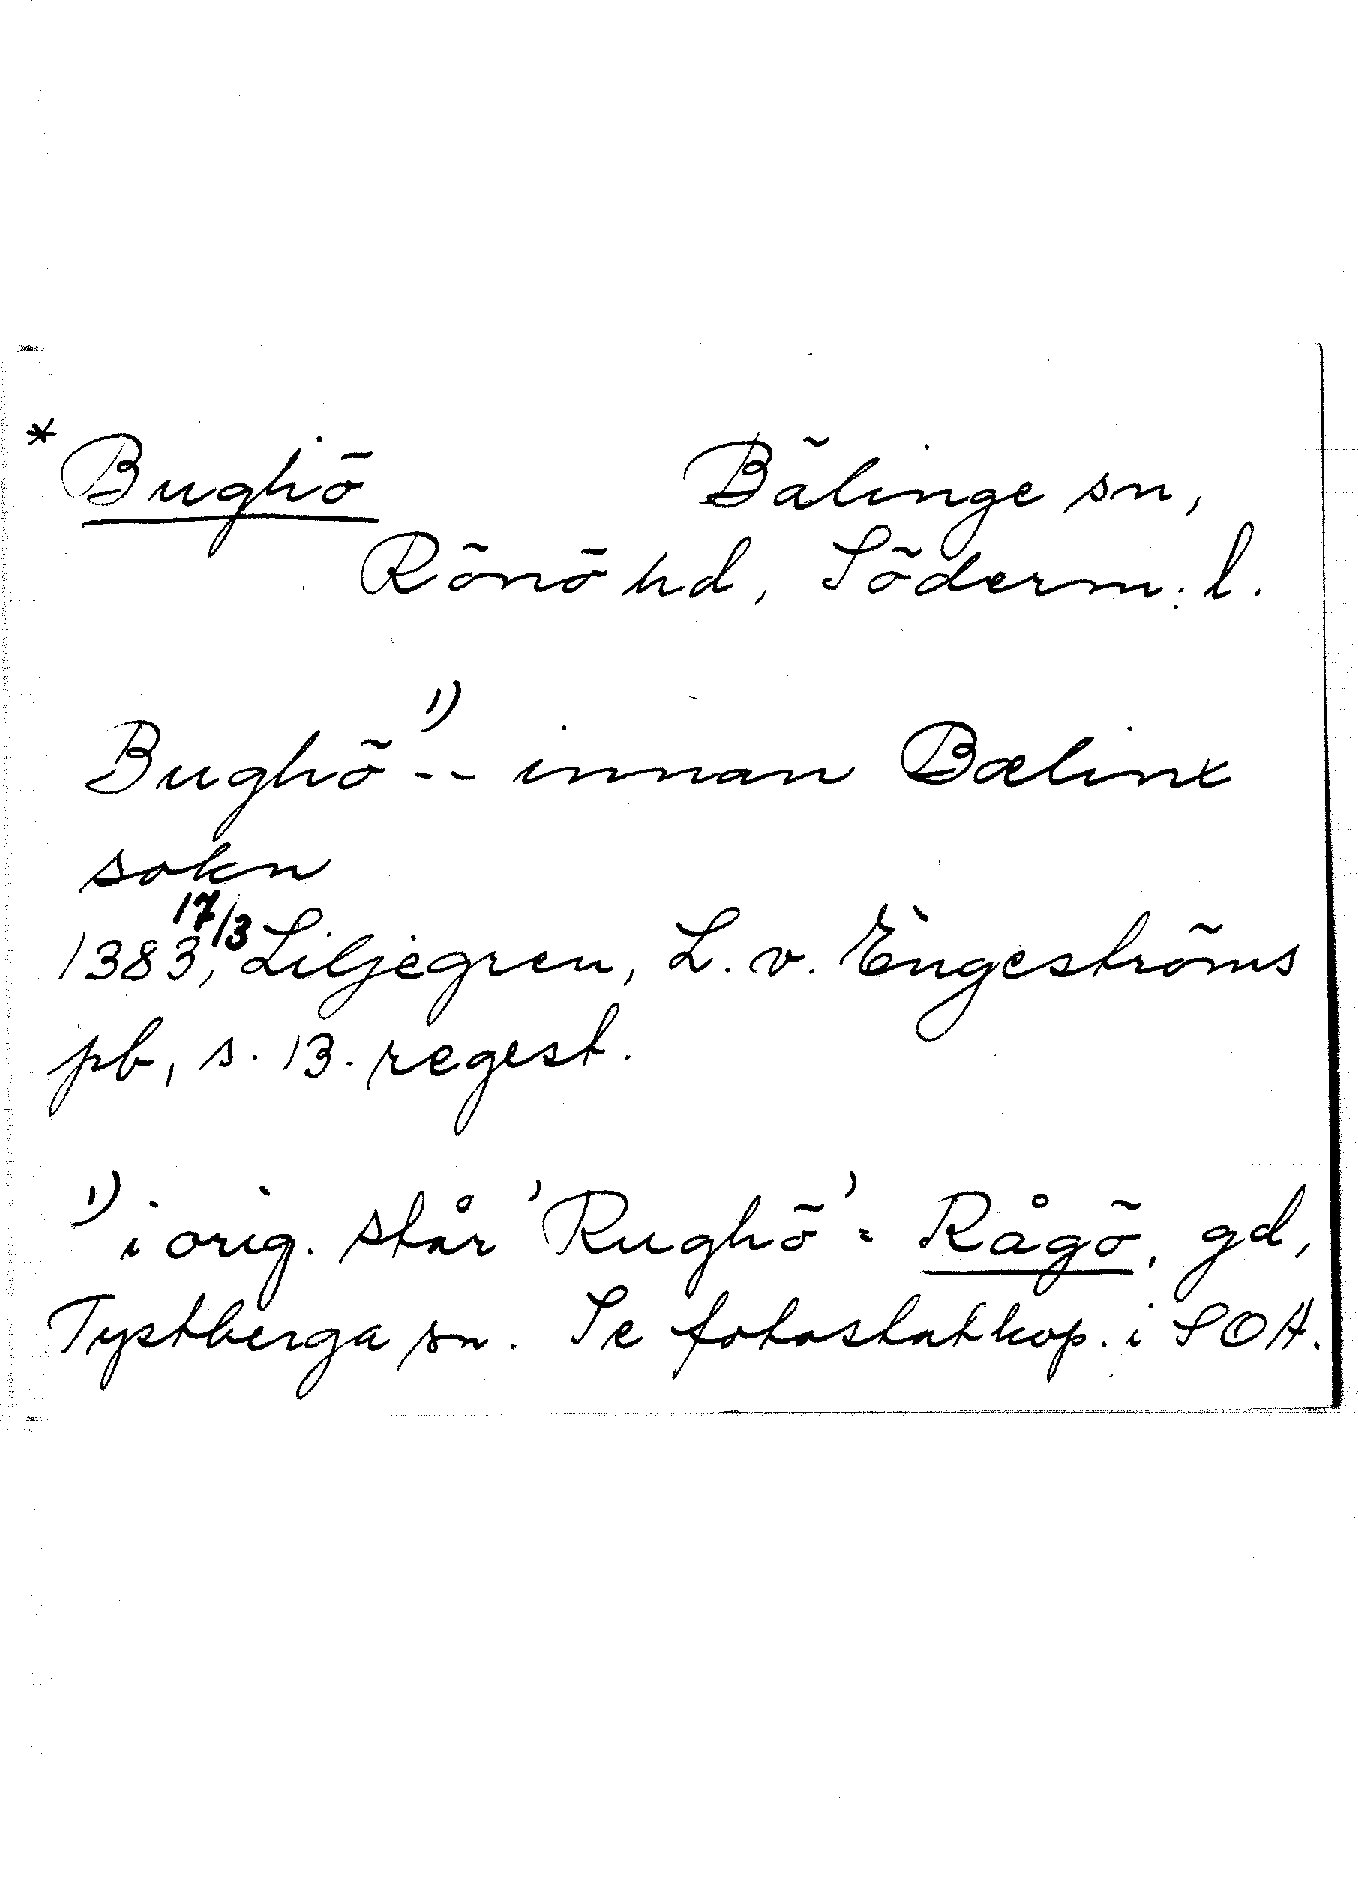 * Bughö Bälinge sn,
Rönö hd, Söderm. l.
Bughö 1) -- innan Bælinx
sokn
1383 17/3, Liljegren, L. v. Engeströms
pb, s. 13. regest.
1) i orig. står 'Rughö' = Rågö, gd,
Tystberga sn. Se fotostatkop. i SOA.